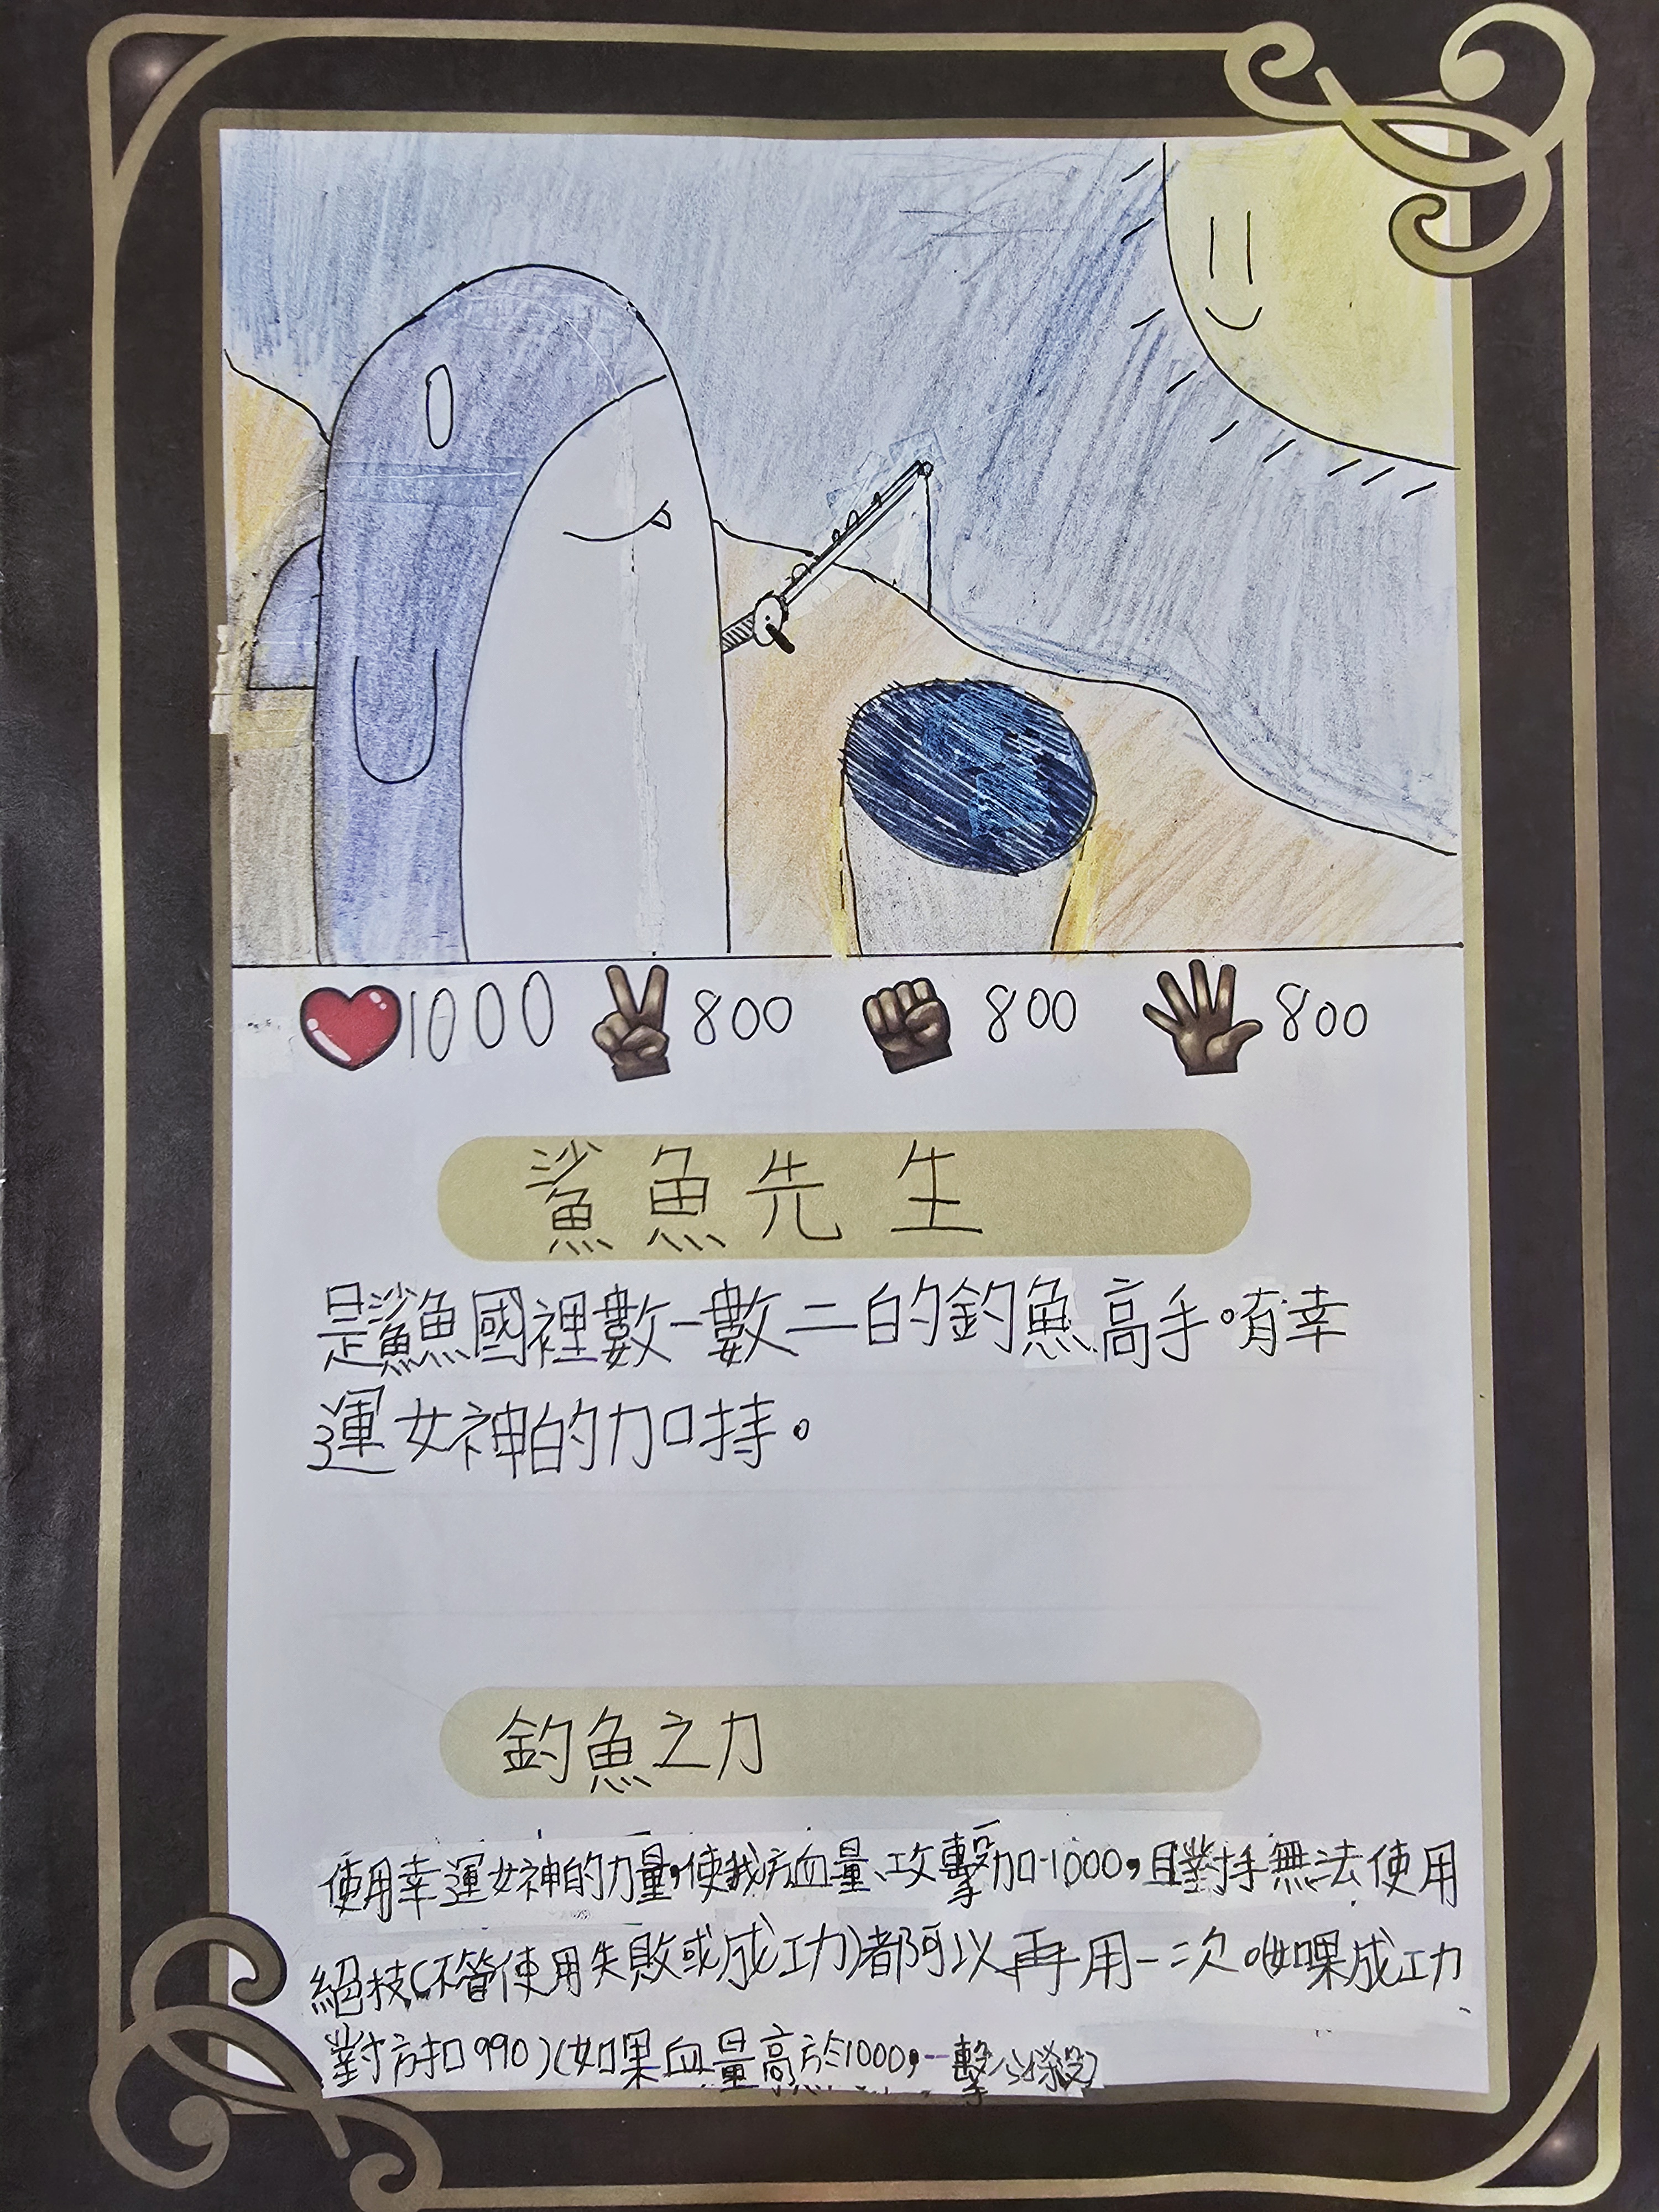 1000 800 800 800
鯊魚先生
是鯊魚國裡數一數二的釣魚高手。有幸
運女神的加持。
釣魚之力
使用幸運女神的力量,使我方血量、攻擊加1000,且對手無法使用
絕技(不管使用失敗或成功)都可以再用一次。(如果成功、
對方扣990)(如果血量高於1000,一擊必殺)